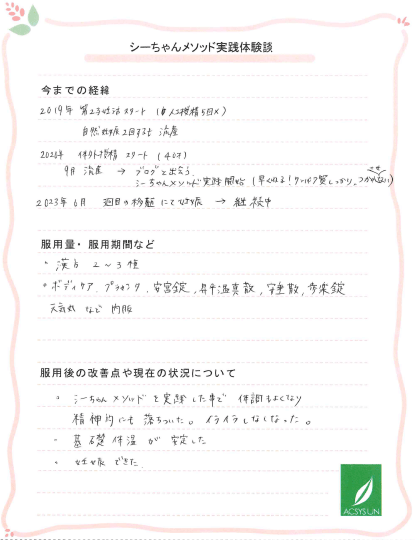 シーちゃんメソッド実践体験談
今までの経緯
2019年 第2子妊活スタート (人工授精5回×)
自然妊娠2回するも 流産
2020年 体外授精 スタート (40才)
9月 流産 → ブログと出会う
シーちゃんメソッド実践開始 (早くねる!タンパク質しっかり、つかれない)
させ
2023年6月 3回目の移植にて妊娠 → 継続中
服用量・服用期間など
・漢方 2〜3種
・ボディケア、プラセンタ、安宮錠、昇平温真散、守重散、歩楽錠
天気丸 など 内服
服用後の改善点や現在の状況について
・シーちゃんメソッドを実践した事で 体調もよくなり
精神的にも落ちついた。イライラしなくなった。
・基礎体温が安定した
・妊娠できた
ACSYSUN